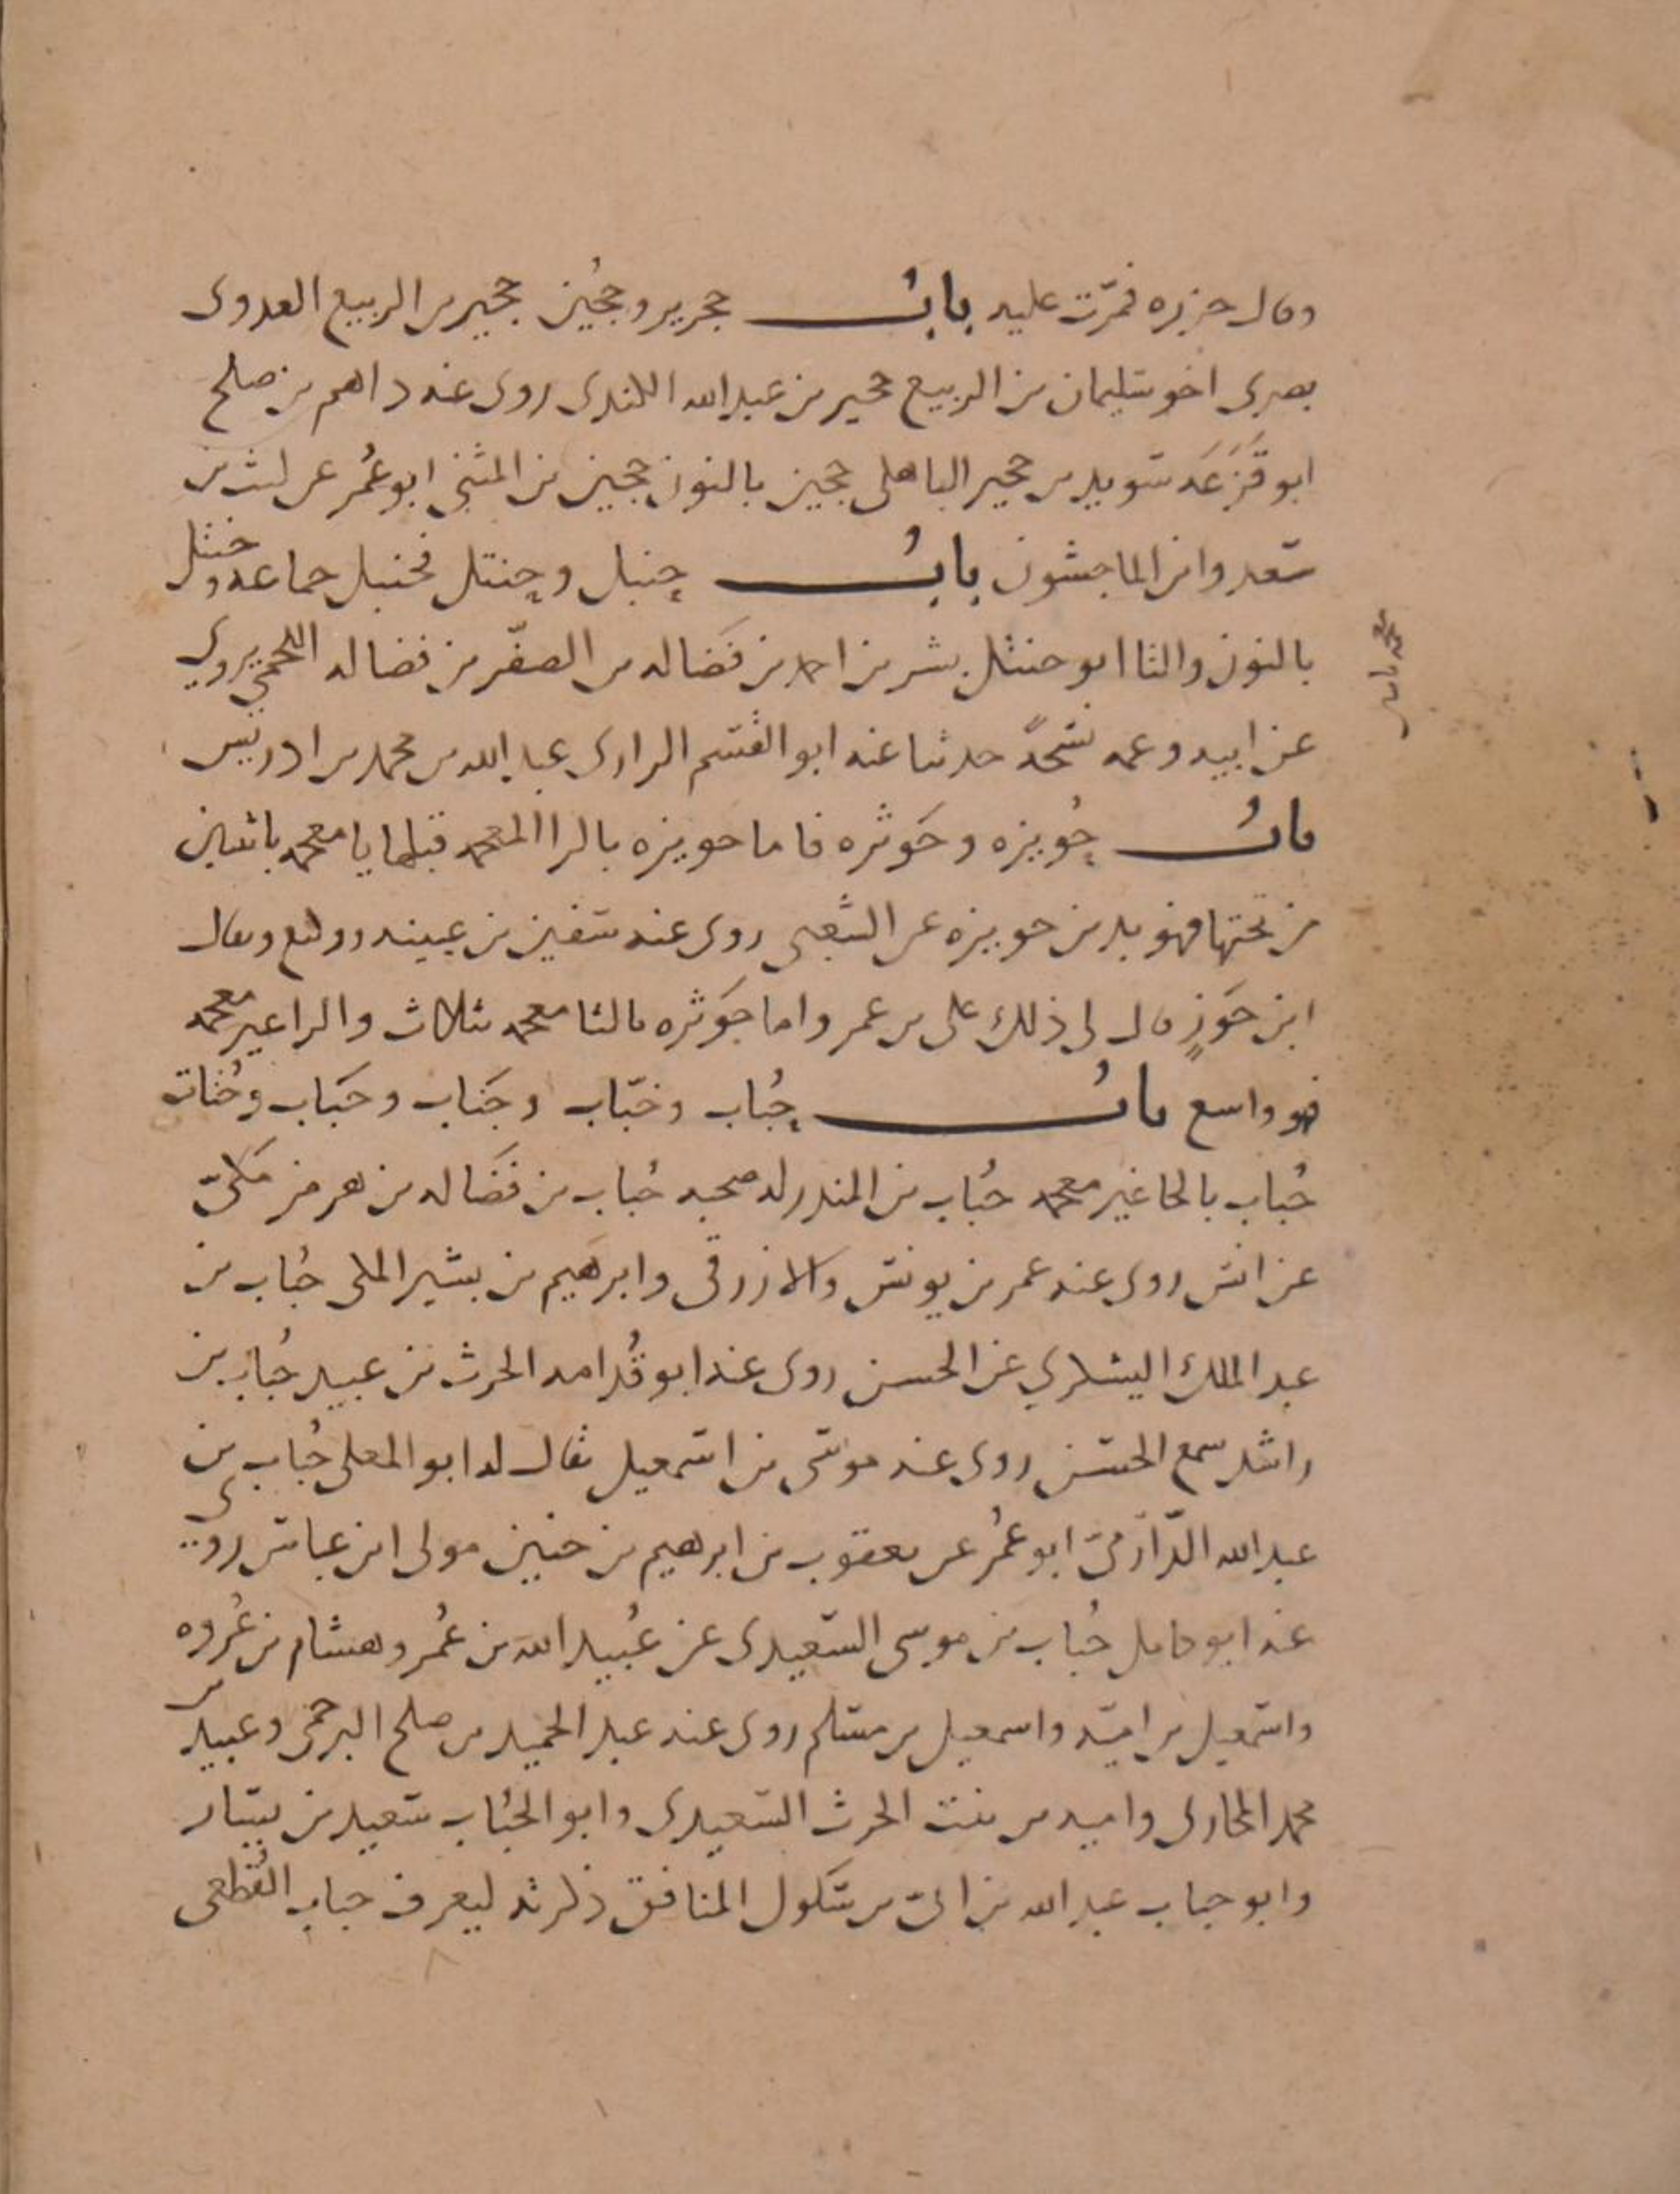 وقال حزيره فمرّت عليه بابُ حجرير وحجُين حجير بن الربيع العدوى
بصرى اخو سليمان بن الربيع حجير بن عبد الله الكندى روى عنه داهم بن صلح
ابو قَزَعَه سويد بن حجير الباهلى حجين بالنون حجين بن المثنى ابو عُمر عن ليث بن
سعد وابن الماجشون بابُ حنبل وحنتل فحنبل جماعه وحنثل
بالنون والثا ابو حنثل بشر بن احمد بن فَضَاله بن الصقّر بن فضاله اللخمي يروى
عن ابيه وعمه نُسخةً حدثنا عنه ابو القسم الرازى عبد الله بن محمد بن ادريس
بابُ حُويزه وحَوثره فاما حويزه بالزا المعجمه قبلها يا معجمه باثنين
من تحتها فهو بدر بن حويزه عن الشعبى روى عنه سفين بن عيينه ووكيع ويقال
ابن حَوزٍ قال لى ذلك على بن عمر واما حَوثره بالثا معجمه بثلاث والرا غير معجمه
فهو واسع بابُ حُباب وخبّاب وجَناب وحَباب وحُتات
حُباب بالحا غير معجمه حُباب بن المنذر له صحبه حُباب بن فَضَاله بن هرمز مكىّ
عن انس روى عنه عمر بن يونس والازرقى وابرهيم بن بشير المكى حُباب بن
عبد الملك اليشكري عن الحسن روى عنه ابو قُدامه الحرث بن عبيد حُباب بن
راشد سمع الحسن روى عنه موسى بن اسمعيل يقال له ابو المعلى حُباب بن
عبد الله الدّارَمىّ ابو عُمر عن يعقوب بن ابرهيم بن حنين مولى ابن عباس روى
عنه ابو كامل حُباب بن موسى السعيدى عن عُبيد الله بن عُمر وهشام بن عُروه
واسمعيل بن اميّه واسمعيل بن مسلم روى عنه عبد الحميد بن صلح البرجمى وعبيد بن
محمد المحاربى واميه بن بنت الحرث السعيدى وابو الحُباب سعيد بن يسار
وابو حباب عبد الله بن ابىّ بن سَلول المنافق ذكرته ليعرف حباب القُطعى